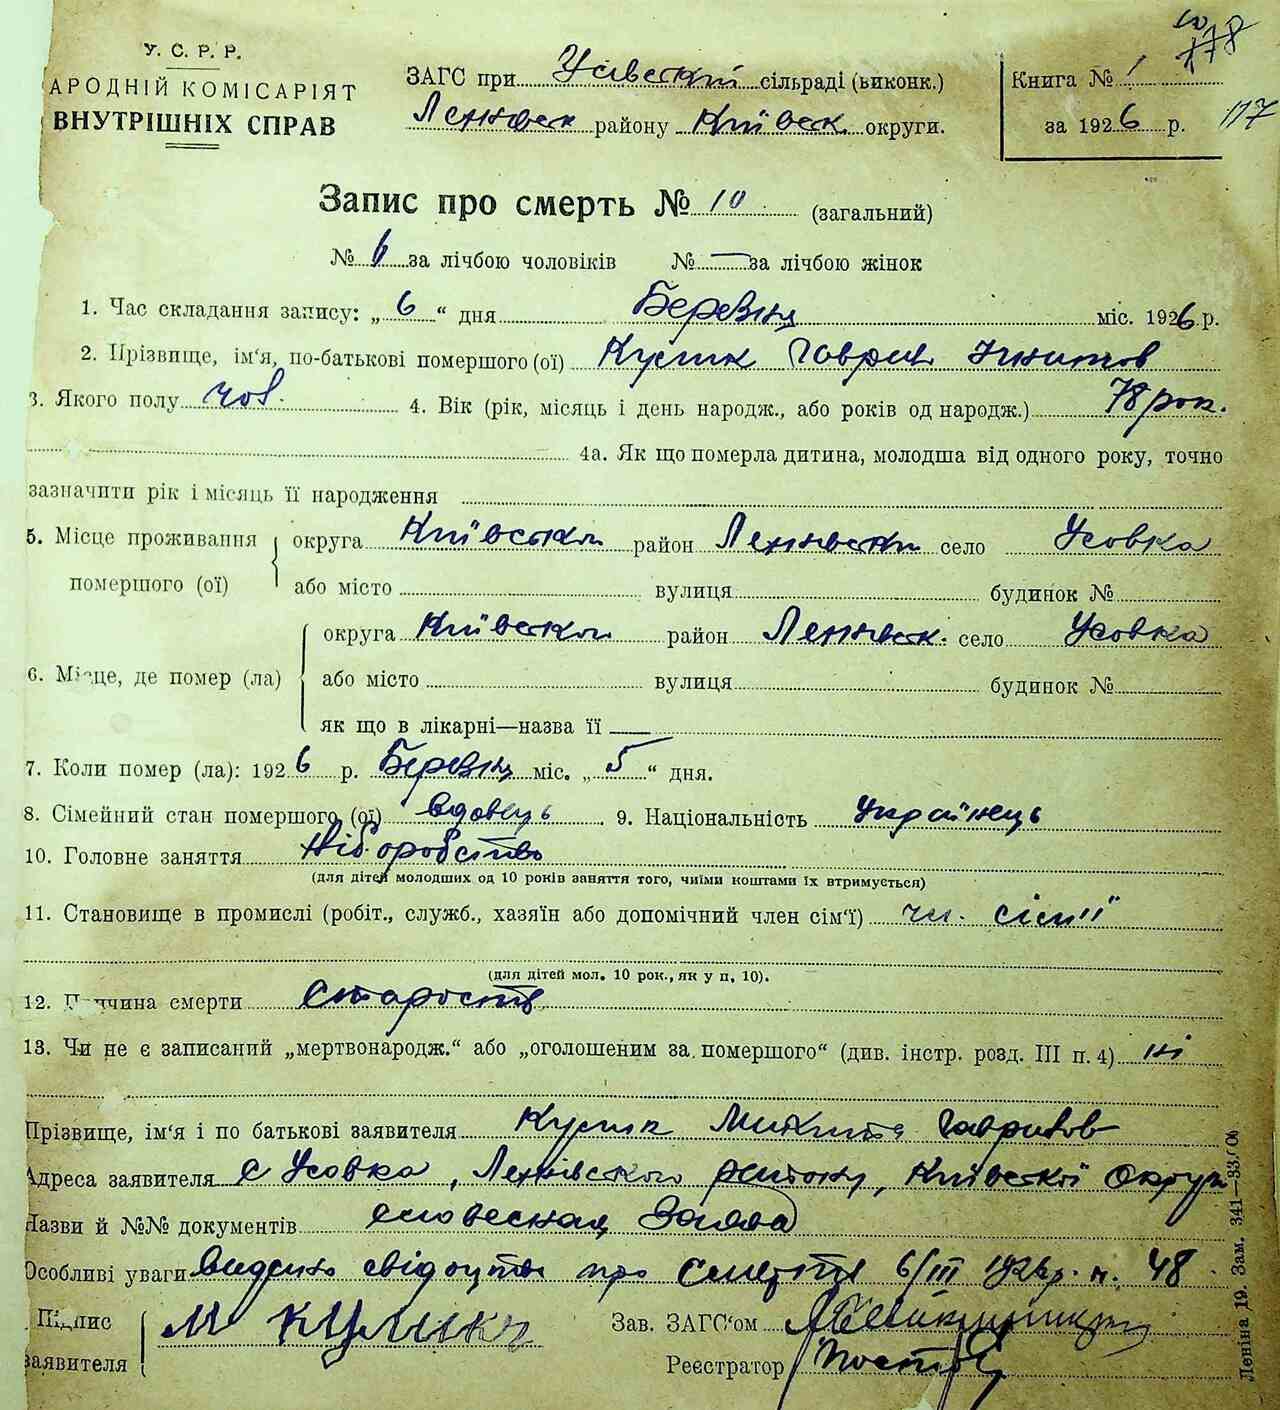 У. С. Р. Р.
АРОДНІЙ КОМІСАРІЯТ
ВНУТРІШНІХ СПРАВ
ЗАГС при Усівський сільраді (виконк.)
району Київськ округи.
Книга № 1
за 1926 р.
178
117
Запис про смерть № 10 (загальний)
№ 6 за лічбою чоловіків № — за лічбою жінок
1. Час складання запису: „ 6 “ дня Березня міс. 1926 р.
2. Прізвище, ім'я, по-батькові помершого (ої) Кулик Гаврил
3. Якого полу чол. 4. Вік (рік, місяць і день народж., або років од народж.) 78 рок.
4а. Як що померла дитина, молодша від одного року, точно
зазначити рік і місяць її народження
5. Місце проживання помершого (ої) округа Київська район село Усовка
або місто вулиця будинок №
6. Місце, де помер (ла) округа Київська район село Усовка
або місто вулиця будинок №
як що в лікарні—назва її —
7. Коли помер (ла): 1926 р. Березня міс. „ 5 “ дня.
8. Сімейний стан помершого (ої) вдовець 9. Національність Українець
10. Головне заняття Хліборобство
(для дітей молодших од 10 років заняття того, чиїми коштами їх втримується)
11. Становище в промислі (робіт., служб., хазяїн або допомічний член сім'ї) чл. сім'ї
(для дітей мол. 10 рок., як у п. 10).
12. Причина смерти Старость
13. Чи не є записаний „мертвонародж.“ або „оголошеним за помершого“ (див. інстр. розд. III п. 4) ні
Прізвище, ім'я і по батькові заявителя Кулик Микита Гаврилов
Адреса заявителя с Усовка, району, Київської Округи
Назви й №№ документів словесная Заява
Особливі уваги видано свідоцтво про смерть 6/III 1926 р. н. 48
Підпис заявителя М Кулика
Зав. ЗАГС'ом
Реєстратор
Леніна 19. Зам. 341—33.000